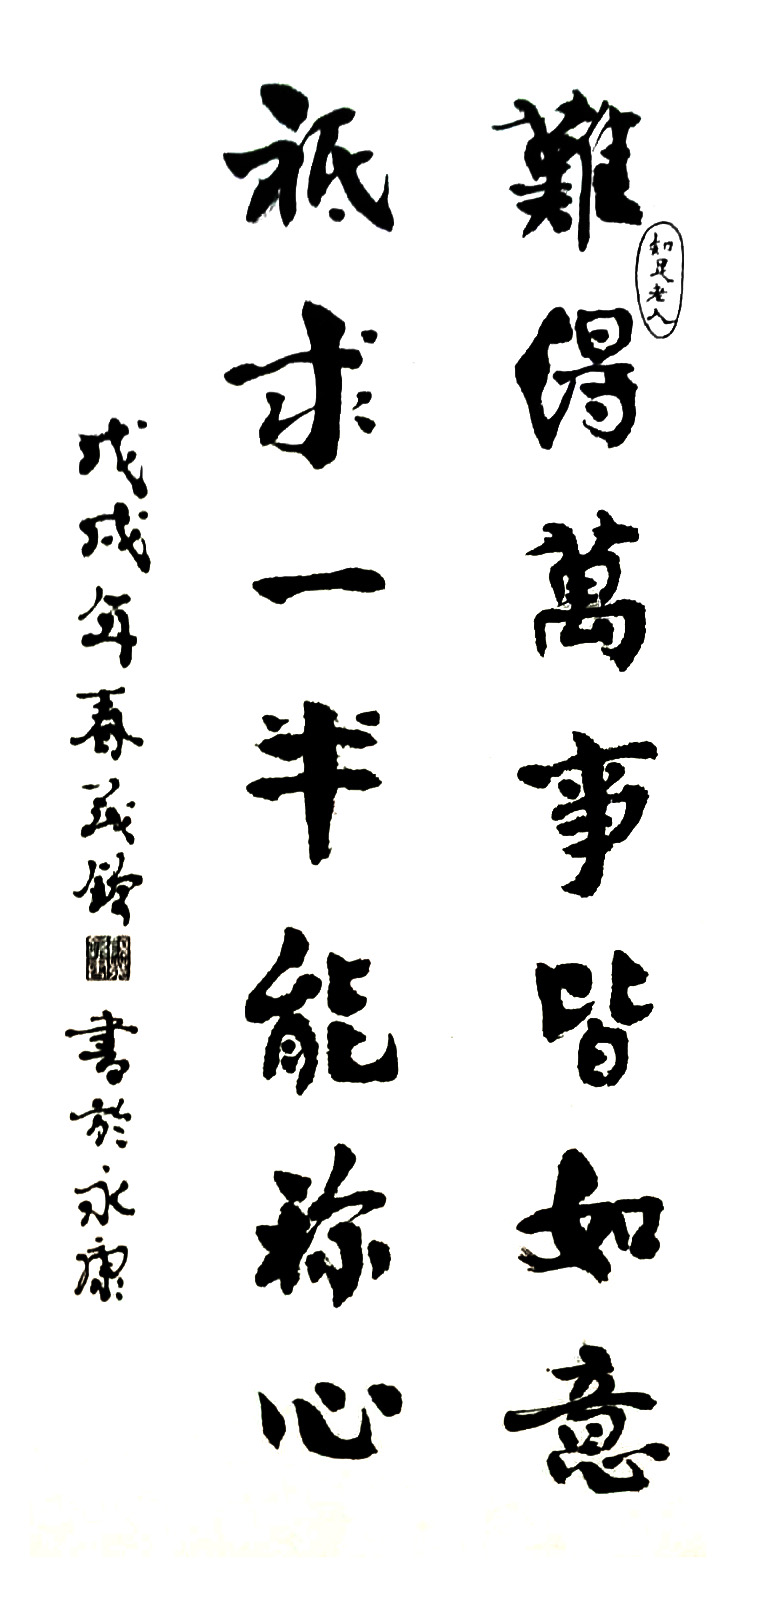 難得萬事皆如意
知足老人
祗求一半能称心
戊戌年春義鈴
書於永康